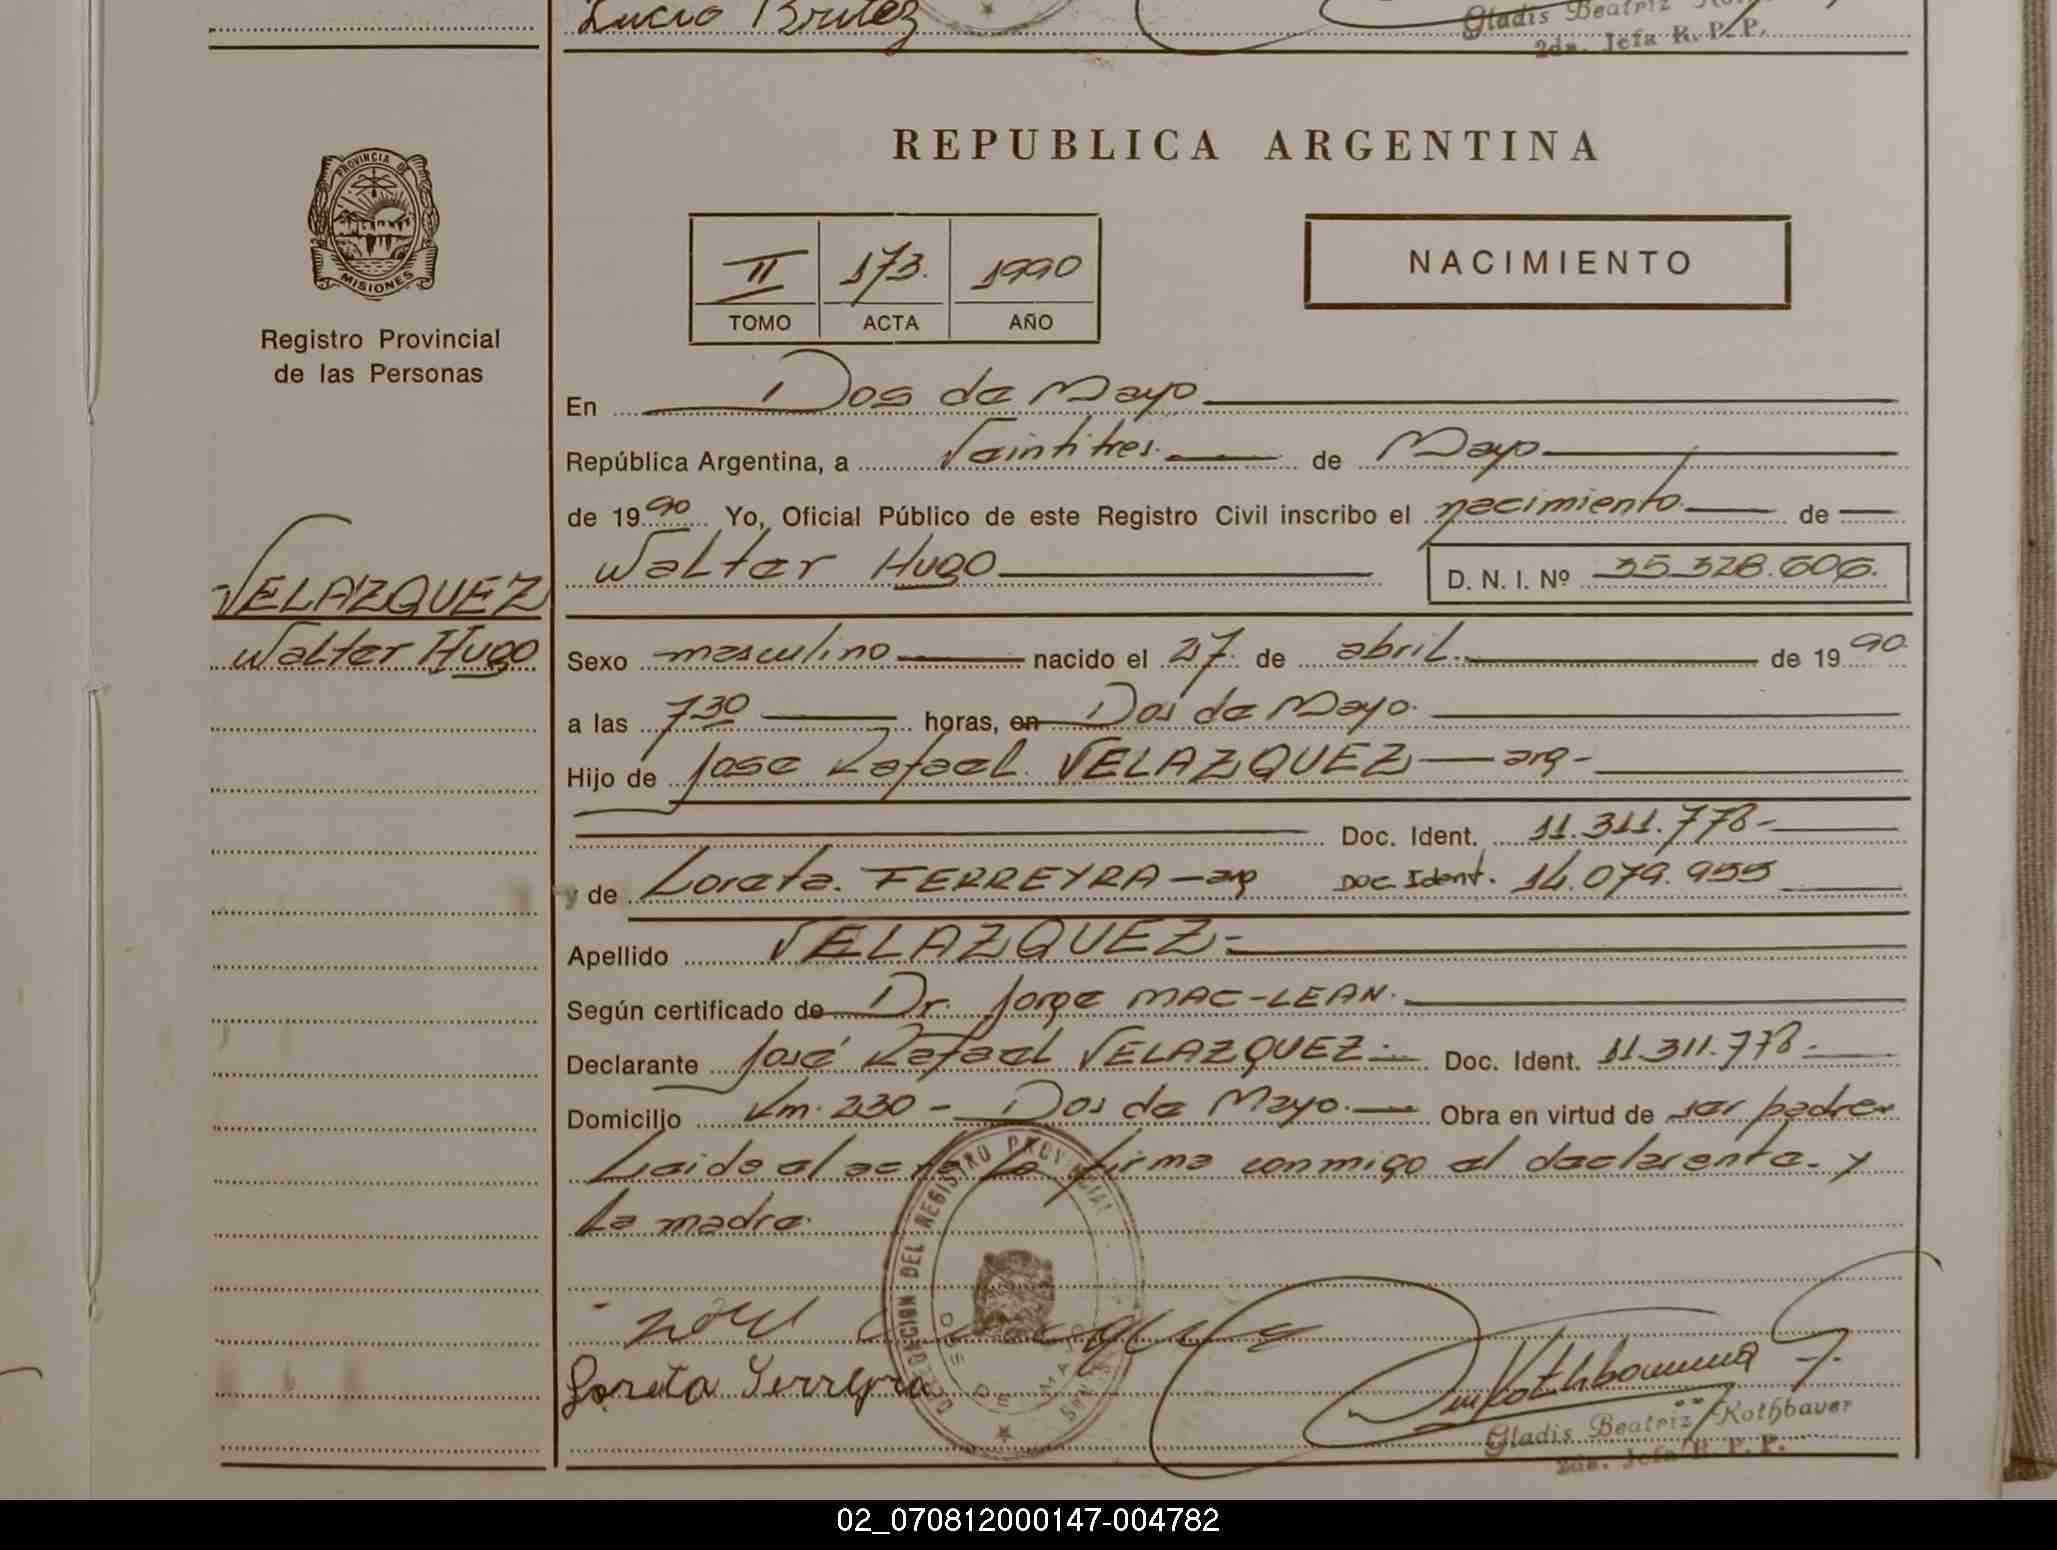 Lucio Britez
Gladis Beatriz
2da. Jefa R. P. P.
PROVINCIA DE
MISIONES
Registro Provincial
de las Personas
VELAZQUEZ
Walter Hugo
REPUBLICA ARGENTINA
II 173. 1990
TOMO ACTA AÑO
NACIMIENTO
En Dos de Mayo
República Argentina, a Veintitres. de Mayo
de 1990 Yo, Oficial Público de este Registro Civil inscribo el nacimiento de
Walter Hugo D. N. I. Nº 35.328.606.
Sexo masculino nacido el 27. de abril. de 1990
a las 7 30 horas, en Dos de Mayo.
Hijo de Jose Rafael VELAZQUEZ — arg -
Doc. Ident. 11.311.778-
y de Loreta. FERREYRA - arg Doc Ident. 14.079.955
Apellido VELAZQUEZ -
Según certificado de Dr. Jorge MAC-LEAN.
Declarante José Rafael VELAZQUEZ - Doc. Ident. 11.311.778-
Domicilio Km. 230 - Dos de Mayo. Obra en virtud de ser padre
Leida el acta la firma conmigo el declarante. y
la madre.
DELEGACION DEL REGISTRO PROVINCIAL
DOS DE MAYO
Loreta Ferreyra
Gladis Beatriz Kothbauer
2da. Jefa R. P. P.
02_070812000147-004782